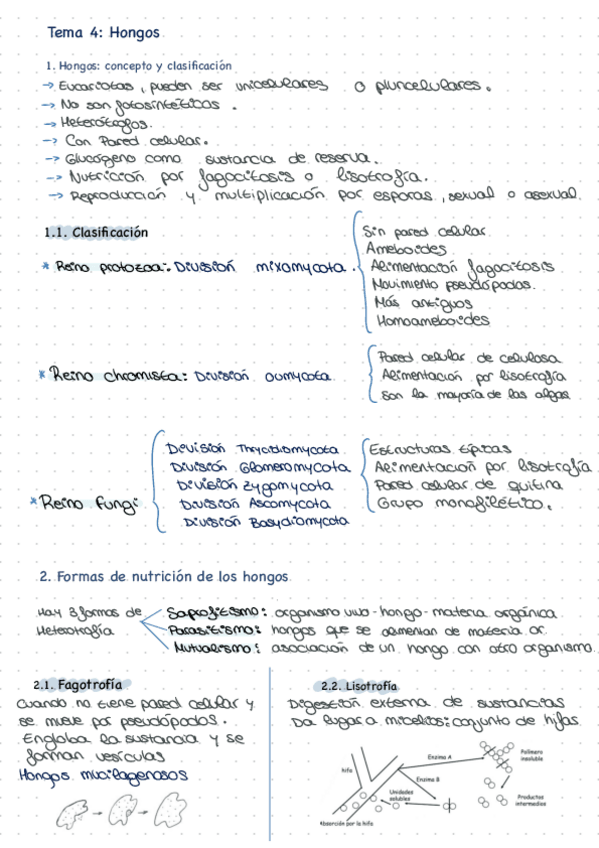 Tema 4: Hongos
1. Hongos: concepto y clasificación
→ Eucariotas, pueden ser unicelulares o pluricelulares.
→ No son fotosintéticos.
→ Heterótrofos.
→ Con Pared celular.
→ Glucógeno como sustancia de reserva.
→ Nutrición por fagocitosis o lisotrofía.
→ Reproducción y multiplicación por esporas, sexual o asexual.
1.1. Clasificación
* Reino protozoa: División mixomycota.
Sin pared celular
Ameboides
Alimentación fagocitosis
Movimiento pseudópodos.
Más antiguos
Homoameboides
* Reino chromista: División oomycota
Pared celular de celulosa
Alimentación por lisotrofía
Son la mayoría de las algas
* Reino fungi
División Thrycidiomycota
División Glomeromycota
División Zygomycota
División Ascomycota
División Basydiomycota
Estructuras típicas
Alimentación por lisotrofía
Pared celular de quitina
Grupo monofilético.
2. Formas de nutrición de los hongos
Hay 3 formas de
Heterotrofía
Saprofitismo: organismo vivo - hongo - materia orgánica
Parasitismo: hongos que se alimentan de materia or.
Mutualismo: asociación de un hongo con otro organismo.
2.1. Fagotrofía
Cuando no tiene pared celular y
se mueve por pseudópodos.
Engloba la sustancia y se
forman vesículas
Hongos mucilagenosos
2.2. Lisotrofía
Digestión externa de sustancias
Da lugar a micelios: conjunto de hifas
hifa
Enzima A
Enzima B
Unidades
solubles
Polímero
insoluble
Productos
intermedios
Absorción por la hifa